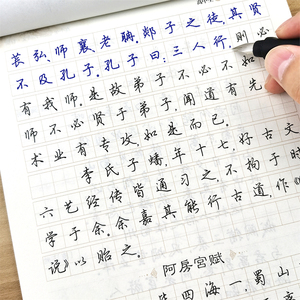 苌弘、师襄、老聃。郯子之徒，其贤
不及孔子。孔子曰：三人行，则必
有我师。是故弟子不必不如
师，师不必贤于弟子，闻道有先
术业有专攻，如是而已。
李氏子蟠，年十七，好古文
六艺经传皆通习之，不拘于时
学于余。余嘉其能行古道，作
说》以贻之。
阿房宫赋
四海一，蜀山